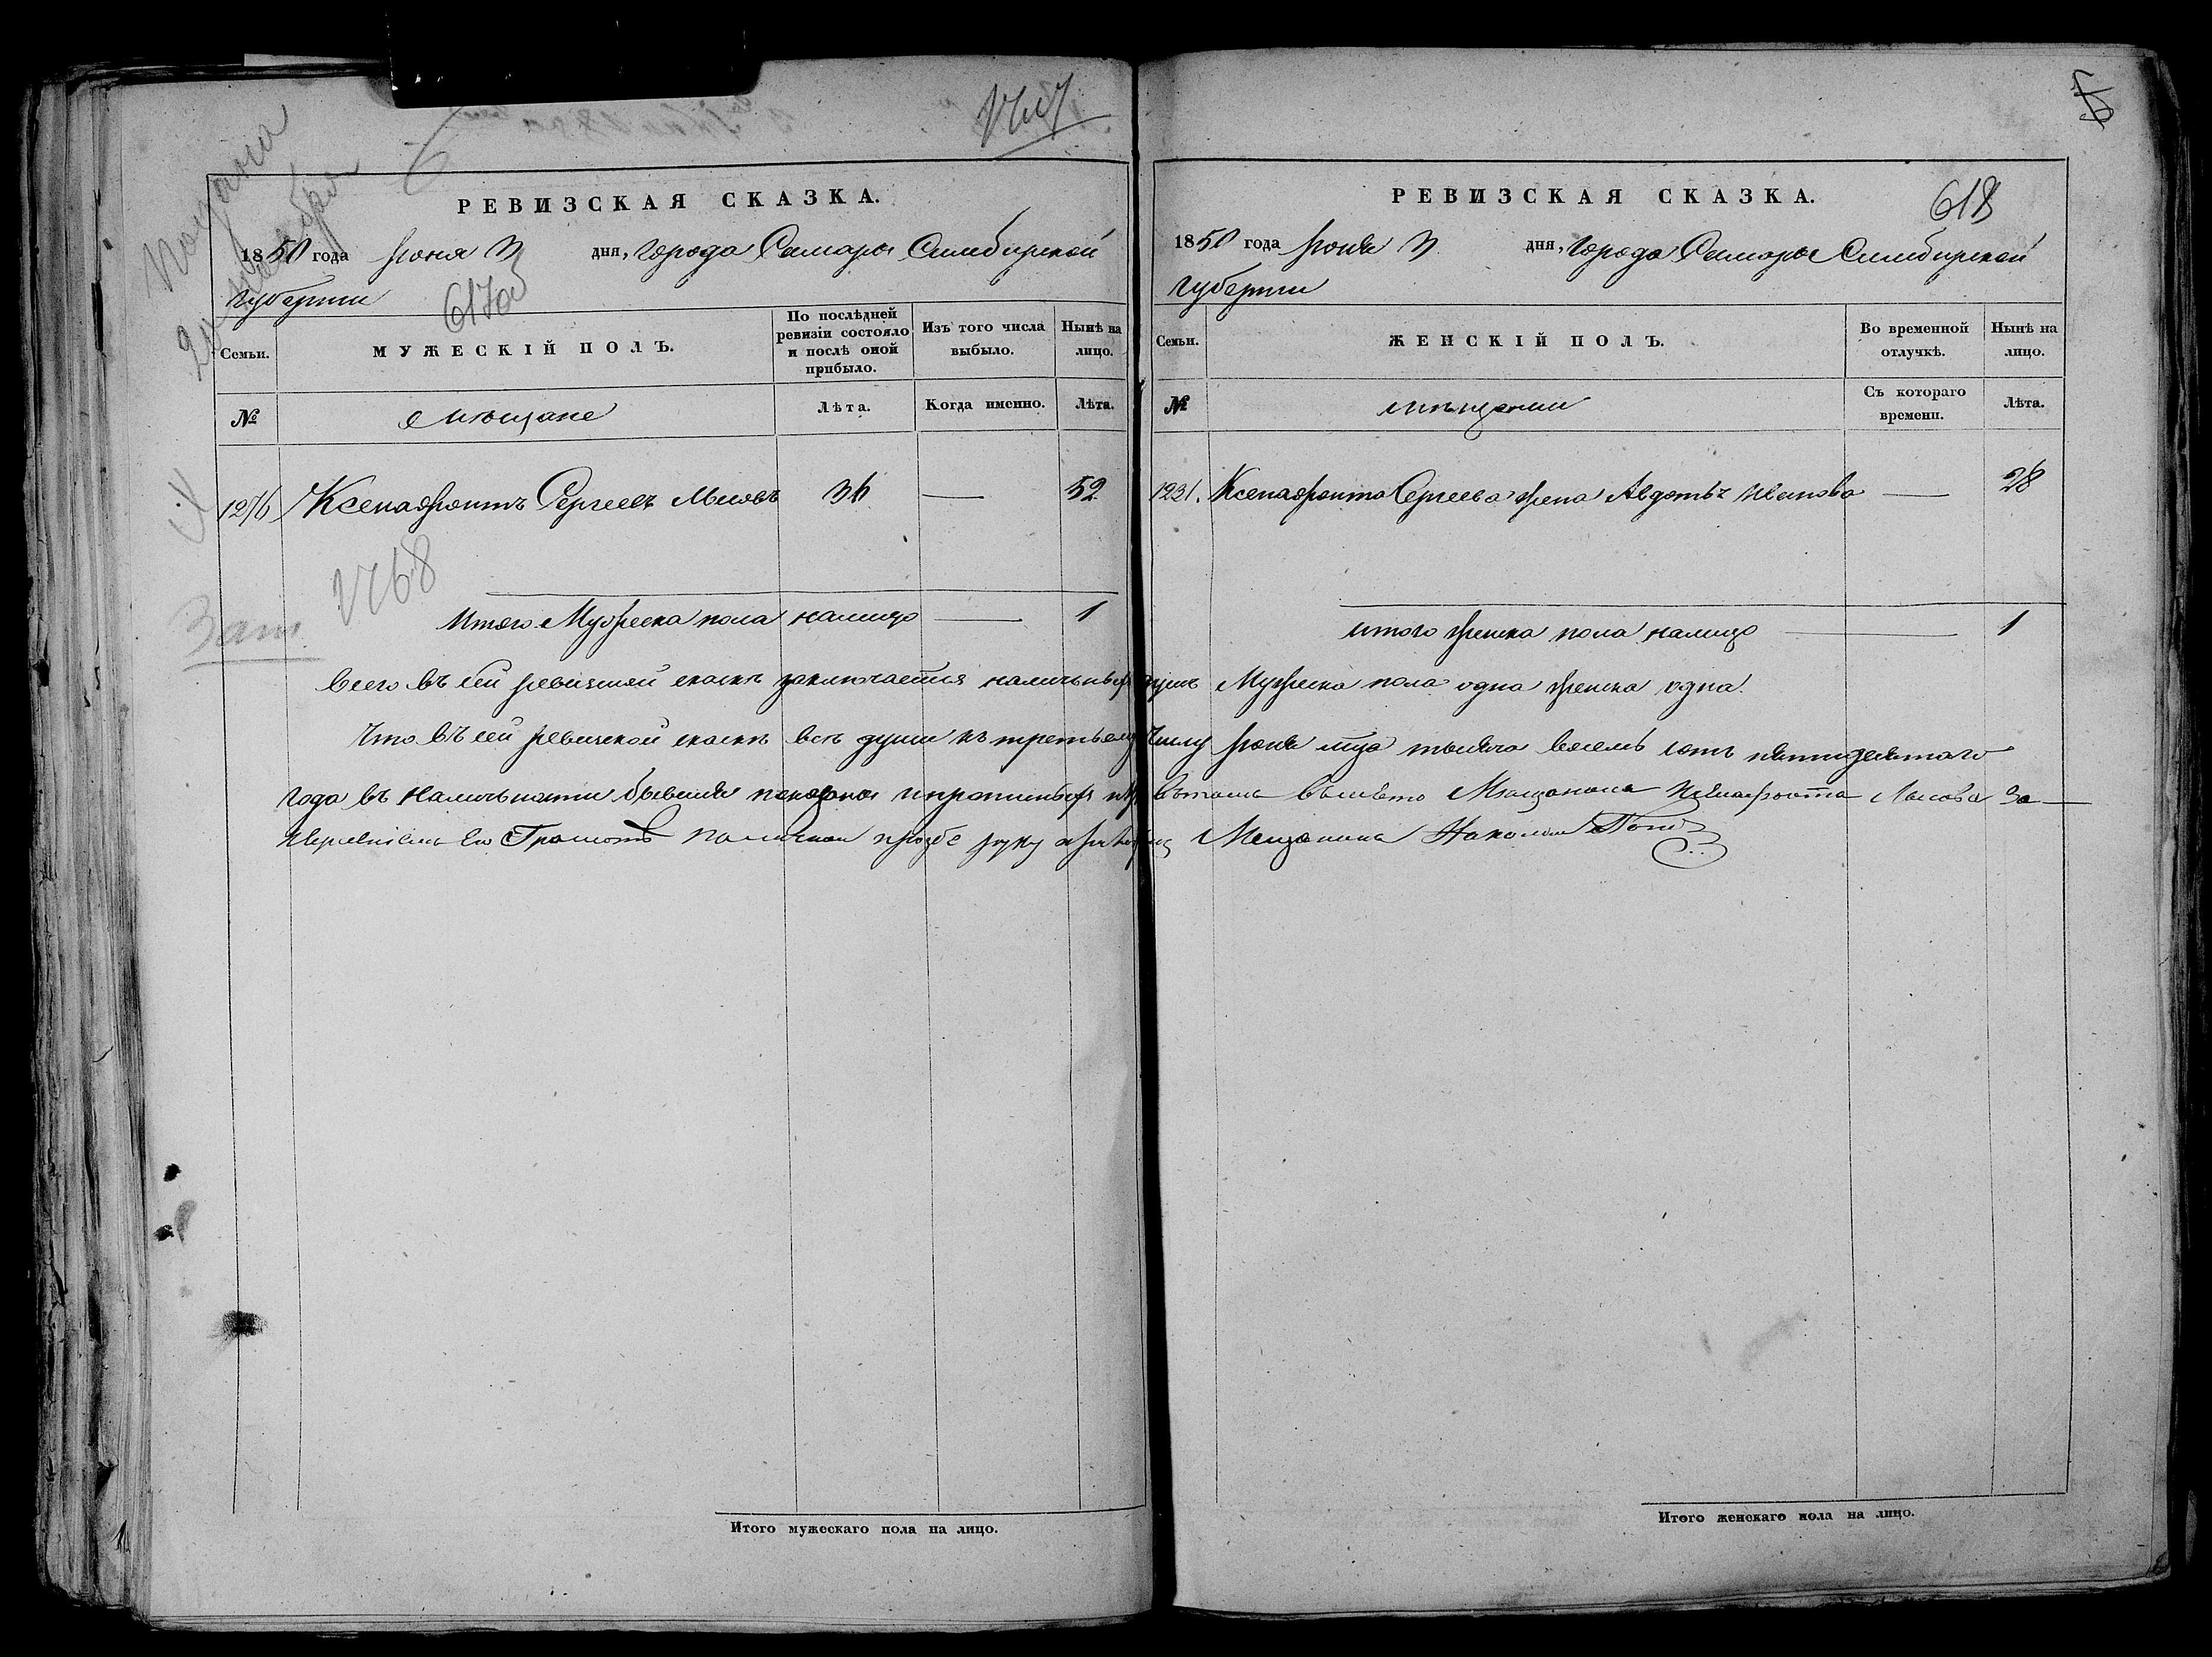 РЕВИЗСКАЯ СКАЗКА.
1850 года Іюня 3 дня, Города Самары Симбирской
Губерніи
617об
Семьи.
МУЖЕСКІЙ ПОЛЪ.
По послѣдней ревизіи состояло и послѣ оной прибыло.
Изъ того числа выбыло.
Нынѣ на лицо.
№
Мѣщане
Лѣта.
Когда именно.
Лѣта.
1276 Ксенафонтъ Сергеевъ 36 — 52
1768
Зап.
Итого Мужеска пола налицо — 1
РЕВИЗСКАЯ СКАЗКА.
618
1850 года Іюня 3 дня, Города Самары Симбирской
Губерніи
Семьи.
ЖЕНСКІЙ ПОЛЪ.
Во временной отлучкѣ.
Нынѣ на лицо.
№
мѣщанки
Съ котораго времени.
Лѣта.
1231. Ксенафонта Сергеева жена Авдотья Иванова — 28
итого женска пола налицо — 1
Всего въ сей ревизской скаскѣ заключается наличныхъ душъ Мужеска пола одна женска одна.
Что въ сей ревизской скаскѣ всѣ души къ третьему Числу Іюня мца тысяча восемь сотъ пятидесятаго
года въ наличности бывшія показаны и пропи въ томъ вместо Мещанина За
Грамотѣ по личной прозбе руку Мещанинъ
Итого мужескаго пола на лицо.
Итого женскаго пола на лицо.